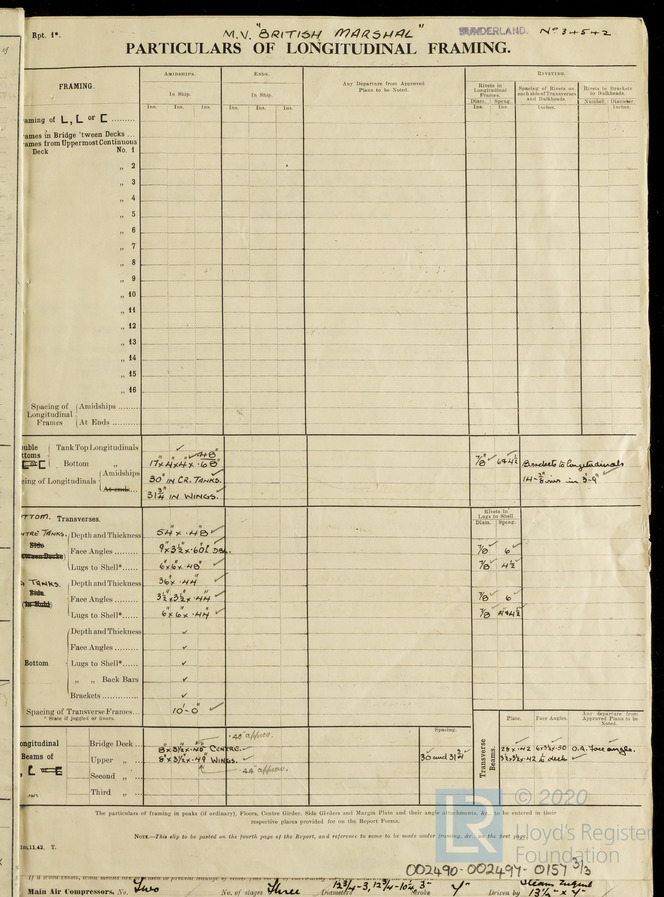 Rpt. 1*. M.V. "BRITISH MARSHAL" SUNDERLAND. No 34542
PARTICULARS OF LONGITUDINAL FRAMING.
FRAMING. AMIDSHIPS. ENDS. Any Departure from Approved Plans to be Noted. RIVETING.
In Ship. In Ship. Rivets in Longitudinal Frames. Spacing of Rivets on each side of Transverses and Bulkheads. Rivets in Brackets to Bulkheads.
Diam. Spcng. Number. Diameter.
Ins. Ins. Ins. Ins. Ins. Ins. Ins. Ins. Inches. Inches.
aming of L, L or C
ames in Bridge 'tween Decks ...
ames from Uppermost Continuous
Deck No. 1
„ 2
„ 3
„ 4
„ 5
„ 6
„ 7
„ 8
„ 9
„ 10
„ 11
„ 12
„ 13
„ 14
„ 15
„ 16
Spacing of Longitudinal Frames { Amidships
At Ends
uble ttoms Tank Top Longitudinals
Bottom „ 17" x 4 x 4 x .68" 7/8" Brackets to longitudinals
cing of Longitudinals { Amidships 30" IN CR. TANKS.
At ends 31 3/4" IN WINGS.
TTOM. Transverses. Rivets in Lugs to Shell.
Diam. Spcng.
NTRE TANKS. Side Depth and Thickness 54" x .48"
tween Decks Face Angles 7/8 6"
Lugs to Shell* 6" x 6" x .48" 7/8 4½
TANKS. Depth and Thickness 36" x .44"
Side (in Hold) Face Angles 3½" x 3½" x .44" 7/8 6"
Lugs to Shell* 6" x 6" x .44" 7/8
Bottom { Depth and Thickness
Face Angles
Lugs to Shell*
„ „ Back Bars
Brackets
Spacing of Transverse Frames 10'-0"
* State if joggled or liners.
Spacing. Transverse Beams. Plate. Face Angles. Any departure from Approved Plans to be Noted.
ongitudinal Beams of Bridge Deck
Upper „ CENTRE. 30 and 31 3/4" O.A. face angles.
8" x 3½" x .49" WINGS. to deck
Second „
Third „
The particulars of framing in peaks (if ordinary), Floors, Centre Girder, Side Girders and Margin Plate and their angle attachments, &c., to be entered in their
respective places provided for on the Report Forms.
NOTE.—This slip to be posted on the fourth page of the Report, and reference to same to be made under framing, &c., on the first page.
11,42. T.
© 2020
Lloyd's Register
Foundation
LR
002490-002497-0157 3/3
Main Air Compressors. No. Two No. of stages Three Diameters Stroke Driven by Steam Engine